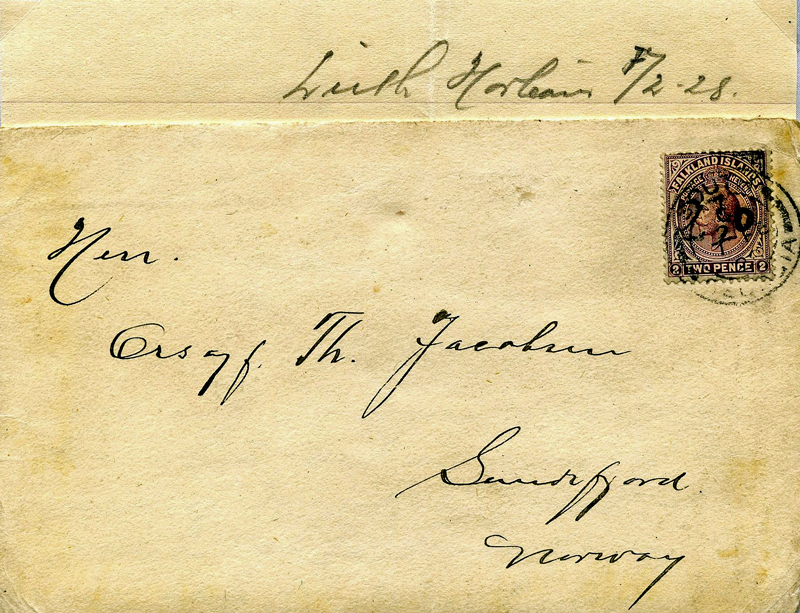 Leith Harbour 7/2-28.
FALKLAND ISLANDS
REVENUE
2 TWO PENCE 2
Herr.
Th. Jacobsen
Sandefjord.
Norway